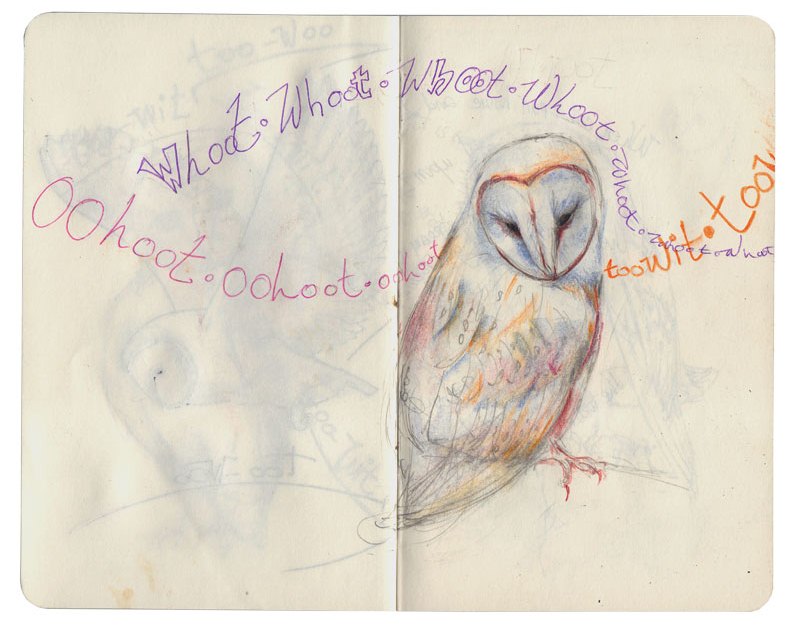 Whoot. Whoot. Whoot. Whoot. Whoot. Whoot. Whoot
OOhoot. OOhoot. oohoot
toowit. toow